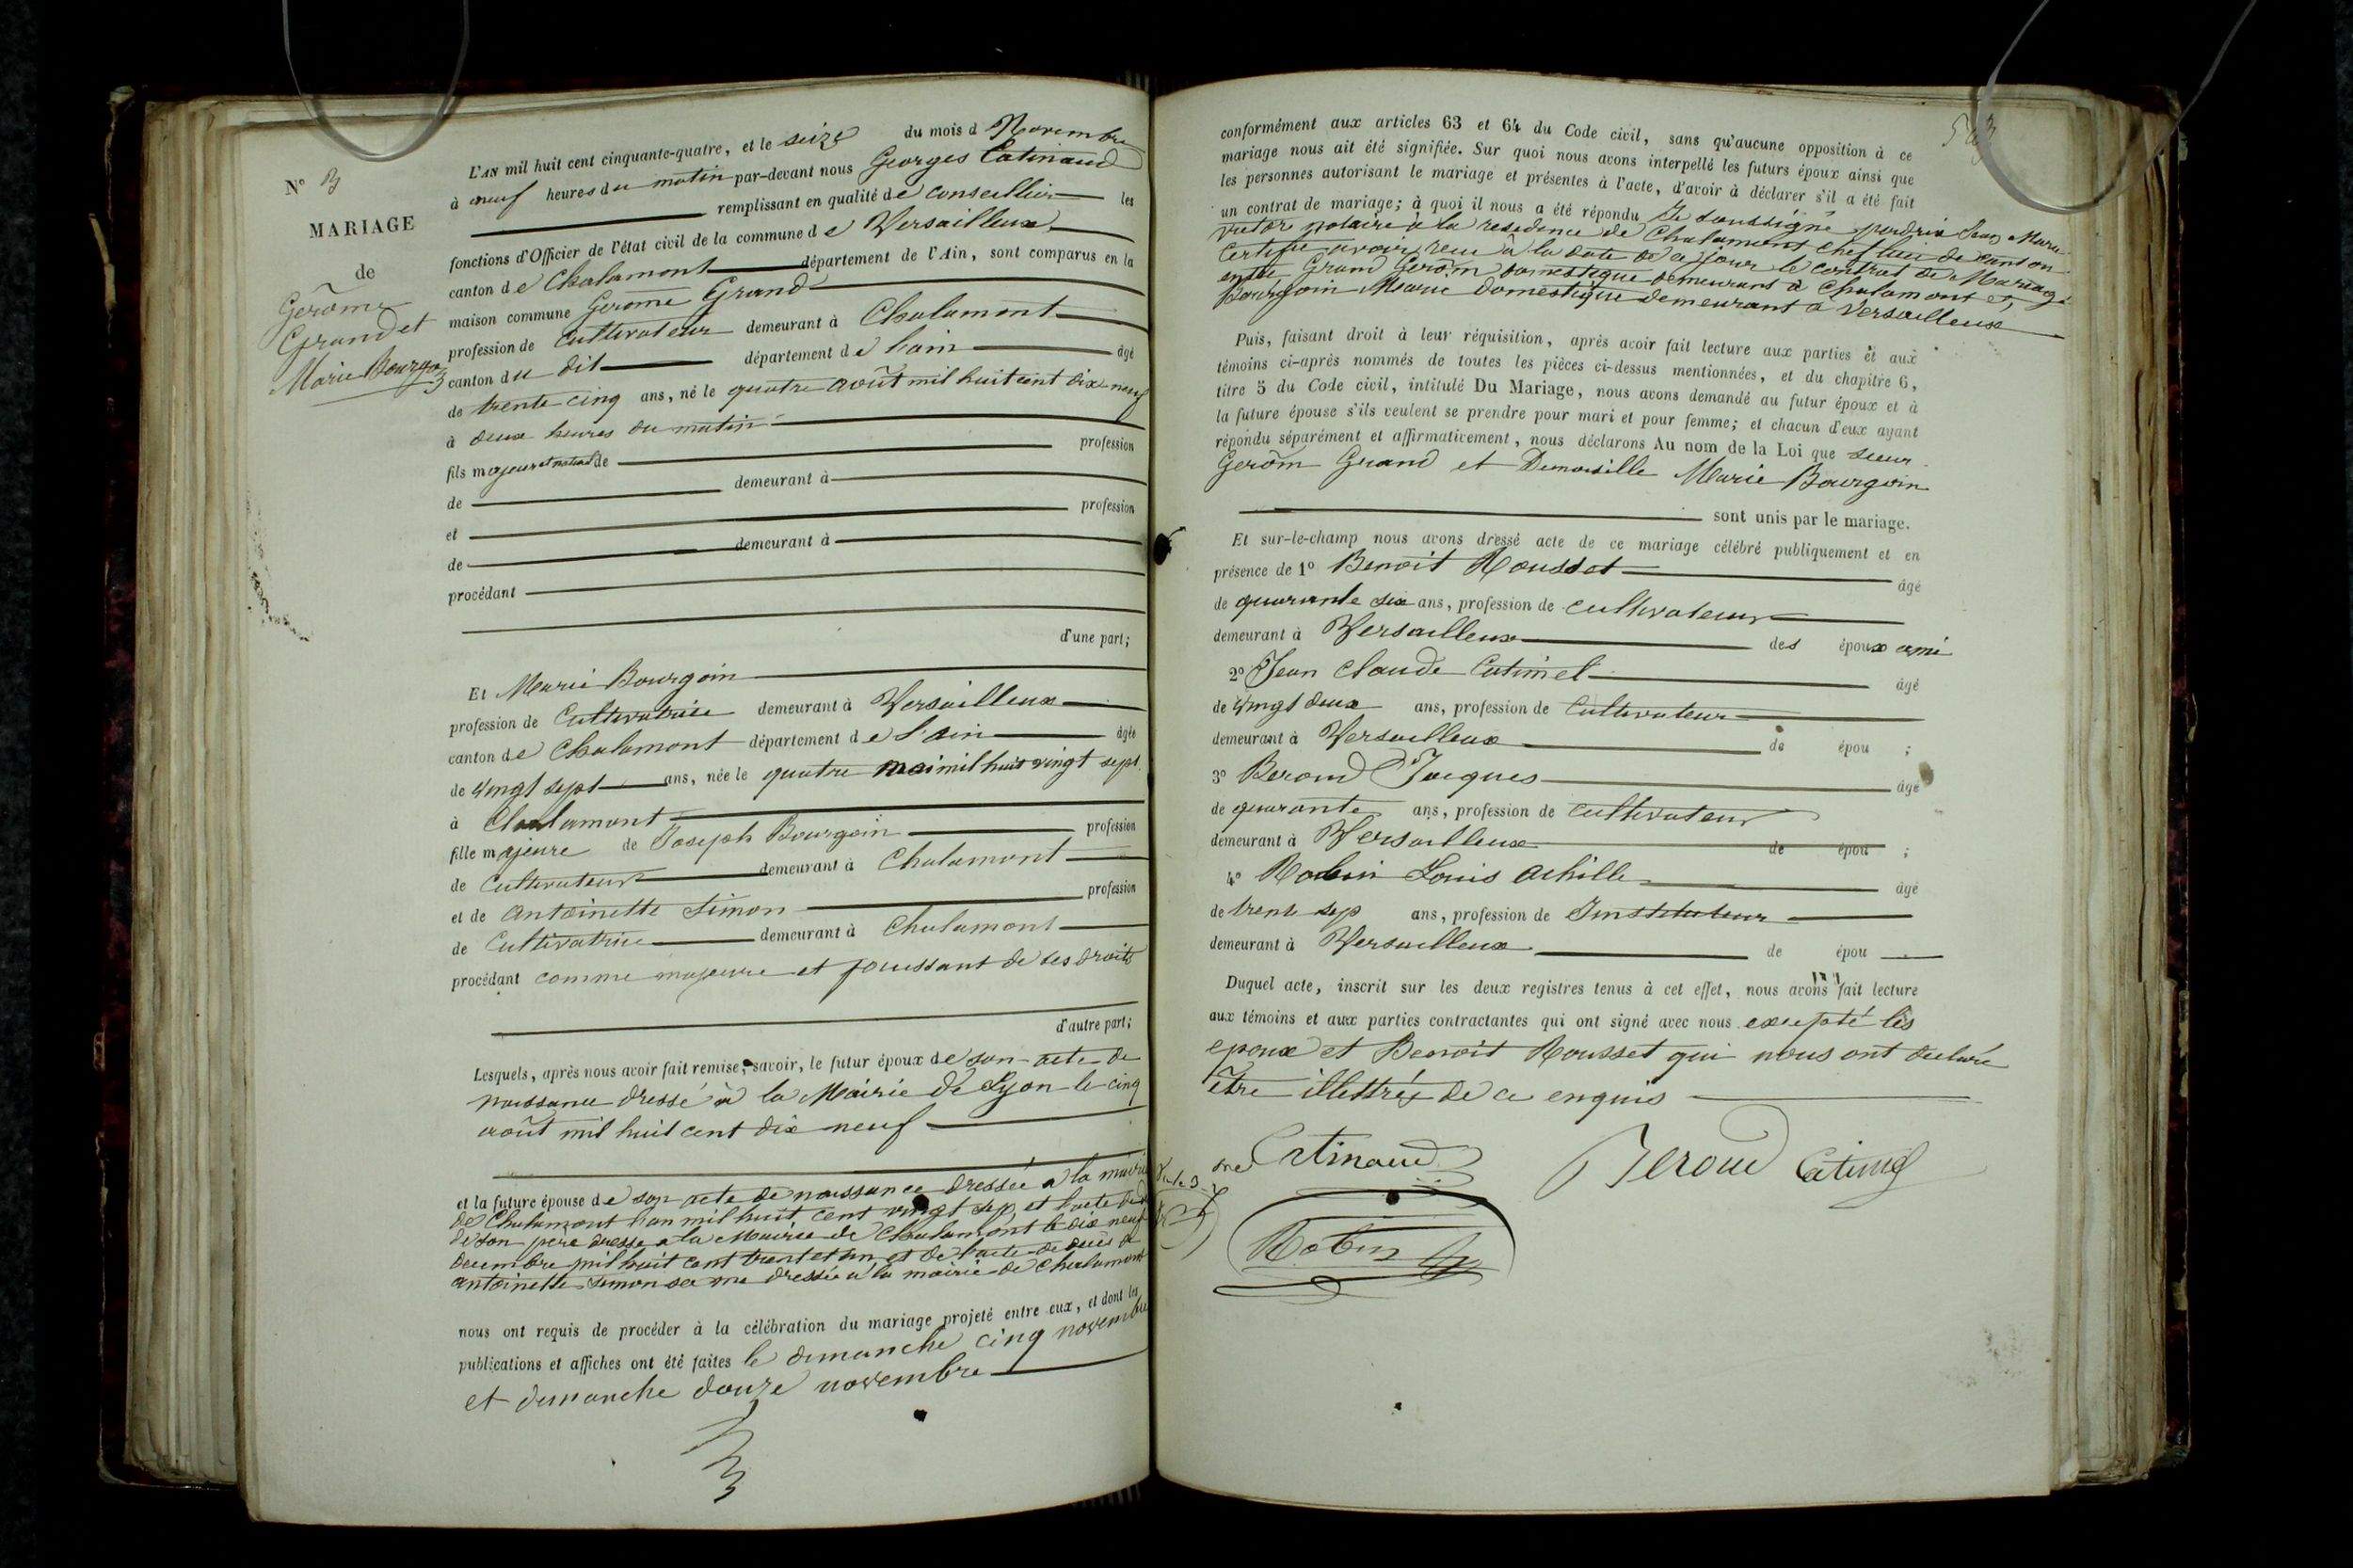 N° 3
MARIAGE
de
Gerôme
Grand et
Marie Bourgoin
L'AN mil huit cent cinquante-quatre, et le seize du mois d Novembre
à neuf heures du matin par-devant nous Georges Catinaud
remplissant en qualité de conseillier les
fonctions d'Officier de l'état civil de la commune de Versailleux
canton de Chalamont département de l'Ain, sont comparus en la
maison commune Gerome Grand
profession de Cultivateur demeurant à Chalamont
canton du dit département de l'ain âgé
de trente cinq ans, né le quatre août mil huit cent dix neuf
à deux heures du matin
fils majeur et naturel de profession
de demeurant à
et profession
de demeurant à
procédant
d'une part;
Et Marie Bourgoin
profession de Cultivatrice demeurant à Versailleux
canton de Chalamont département de l'ain âgée
de vingt sept ans, née le quatre mai mil huit vingt sept
à Chalamont
fille majeure de Joseph Bourgoin profession
de Cultivateur demeurant à Chalamont
et de Antoinette Simon profession
de Cultivatrice demeurant à Chalamont
procédant comme majeure et jouissant de ses droits
d'autre part;
Lesquels, après nous avoir fait remise, savoir, le futur époux de son acte de
naissance dressé à la Mairie de Lyon le cinq
août mil huit cent dix neuf
et la future épouse de son acte de naissance dressée a la mairie
de Chalamont l'an mil huit cent vingt sep, et l'acte de
de son père dressé a la Mairie de Chalamont le dix neuf
decembre mil huit cent trent et un et de l'acte de décès de
antoinette Simon sa me dressée a la mairie de Chalamont
nous ont requis de procéder à la célébration du mariage projeté entre eux, et dont les
publications et affiches ont été faites le dimanche cinq novembre
et dimanche douze novembre
conformément aux articles 63 et 64 du Code civil, sans qu'aucune opposition à ce
mariage nous ait été signifiée. Sur quoi nous avons interpellé les futurs époux ainsi que
les personnes autorisant le mariage et présentes à l'acte, d'avoir à déclarer s'il a été fait
un contrat de mariage; à quoi il nous a été répondu Je soussigné perdrix Jean Marie
victor notaire à la residence de Chalamont chef lieu de canton
certifie avoir recu à la date de ce jour le contrat de Mariage
entre Grand Gerôm domestique demeurant à Chalamont et
Bourgoin Marie domestique demeurant à Versailleux
Puis, faisant droit à leur réquisition, après avoir fait lecture aux parties et aux
témoins ci-après nommés de toutes les pièces ci-dessus mentionnées, et du chapitre 6,
titre 5 du Code civil, intitulé Du Mariage, nous avons demandé au futur époux et à
la future épouse s'ils veulent se prendre pour mari et pour femme; et chacun d'eux ayant
répondu séparément et affirmativement, nous déclarons Au nom de la Loi que sieur
Gerôm Grand et Demoisille Marie Bourgoin
sont unis par le mariage.
Et sur-le-champ nous avons dressé acte de ce mariage célébré publiquement et en
présence de 1° Benoit Rousset âgé
de quarante six ans, profession de cultivateur
demeurant à Versailleux des époux ami
2° Jean Claude Catinel âgé
de vingt deux ans, profession de Cultivateur
demeurant à Versailleux de épou ;
3° Beroud Jacques âgé
de quarante ans, profession de cultivateur
demeurant à Versailleux de épou ;
4° Robin Louis Achille âgé
de trente sep ans, profession de Instituteur
demeurant à Versailleux de épou
Duquel acte, inscrit sur les deux registres tenus à cet effet, nous avons fait lecture
aux témoins et aux parties contractantes qui ont signé avec nous excepté les
epoux et Benoit Rousset qui nous ont declaré
être illettrés de ce enquis
Catinaud Beroud Catinel
Robin